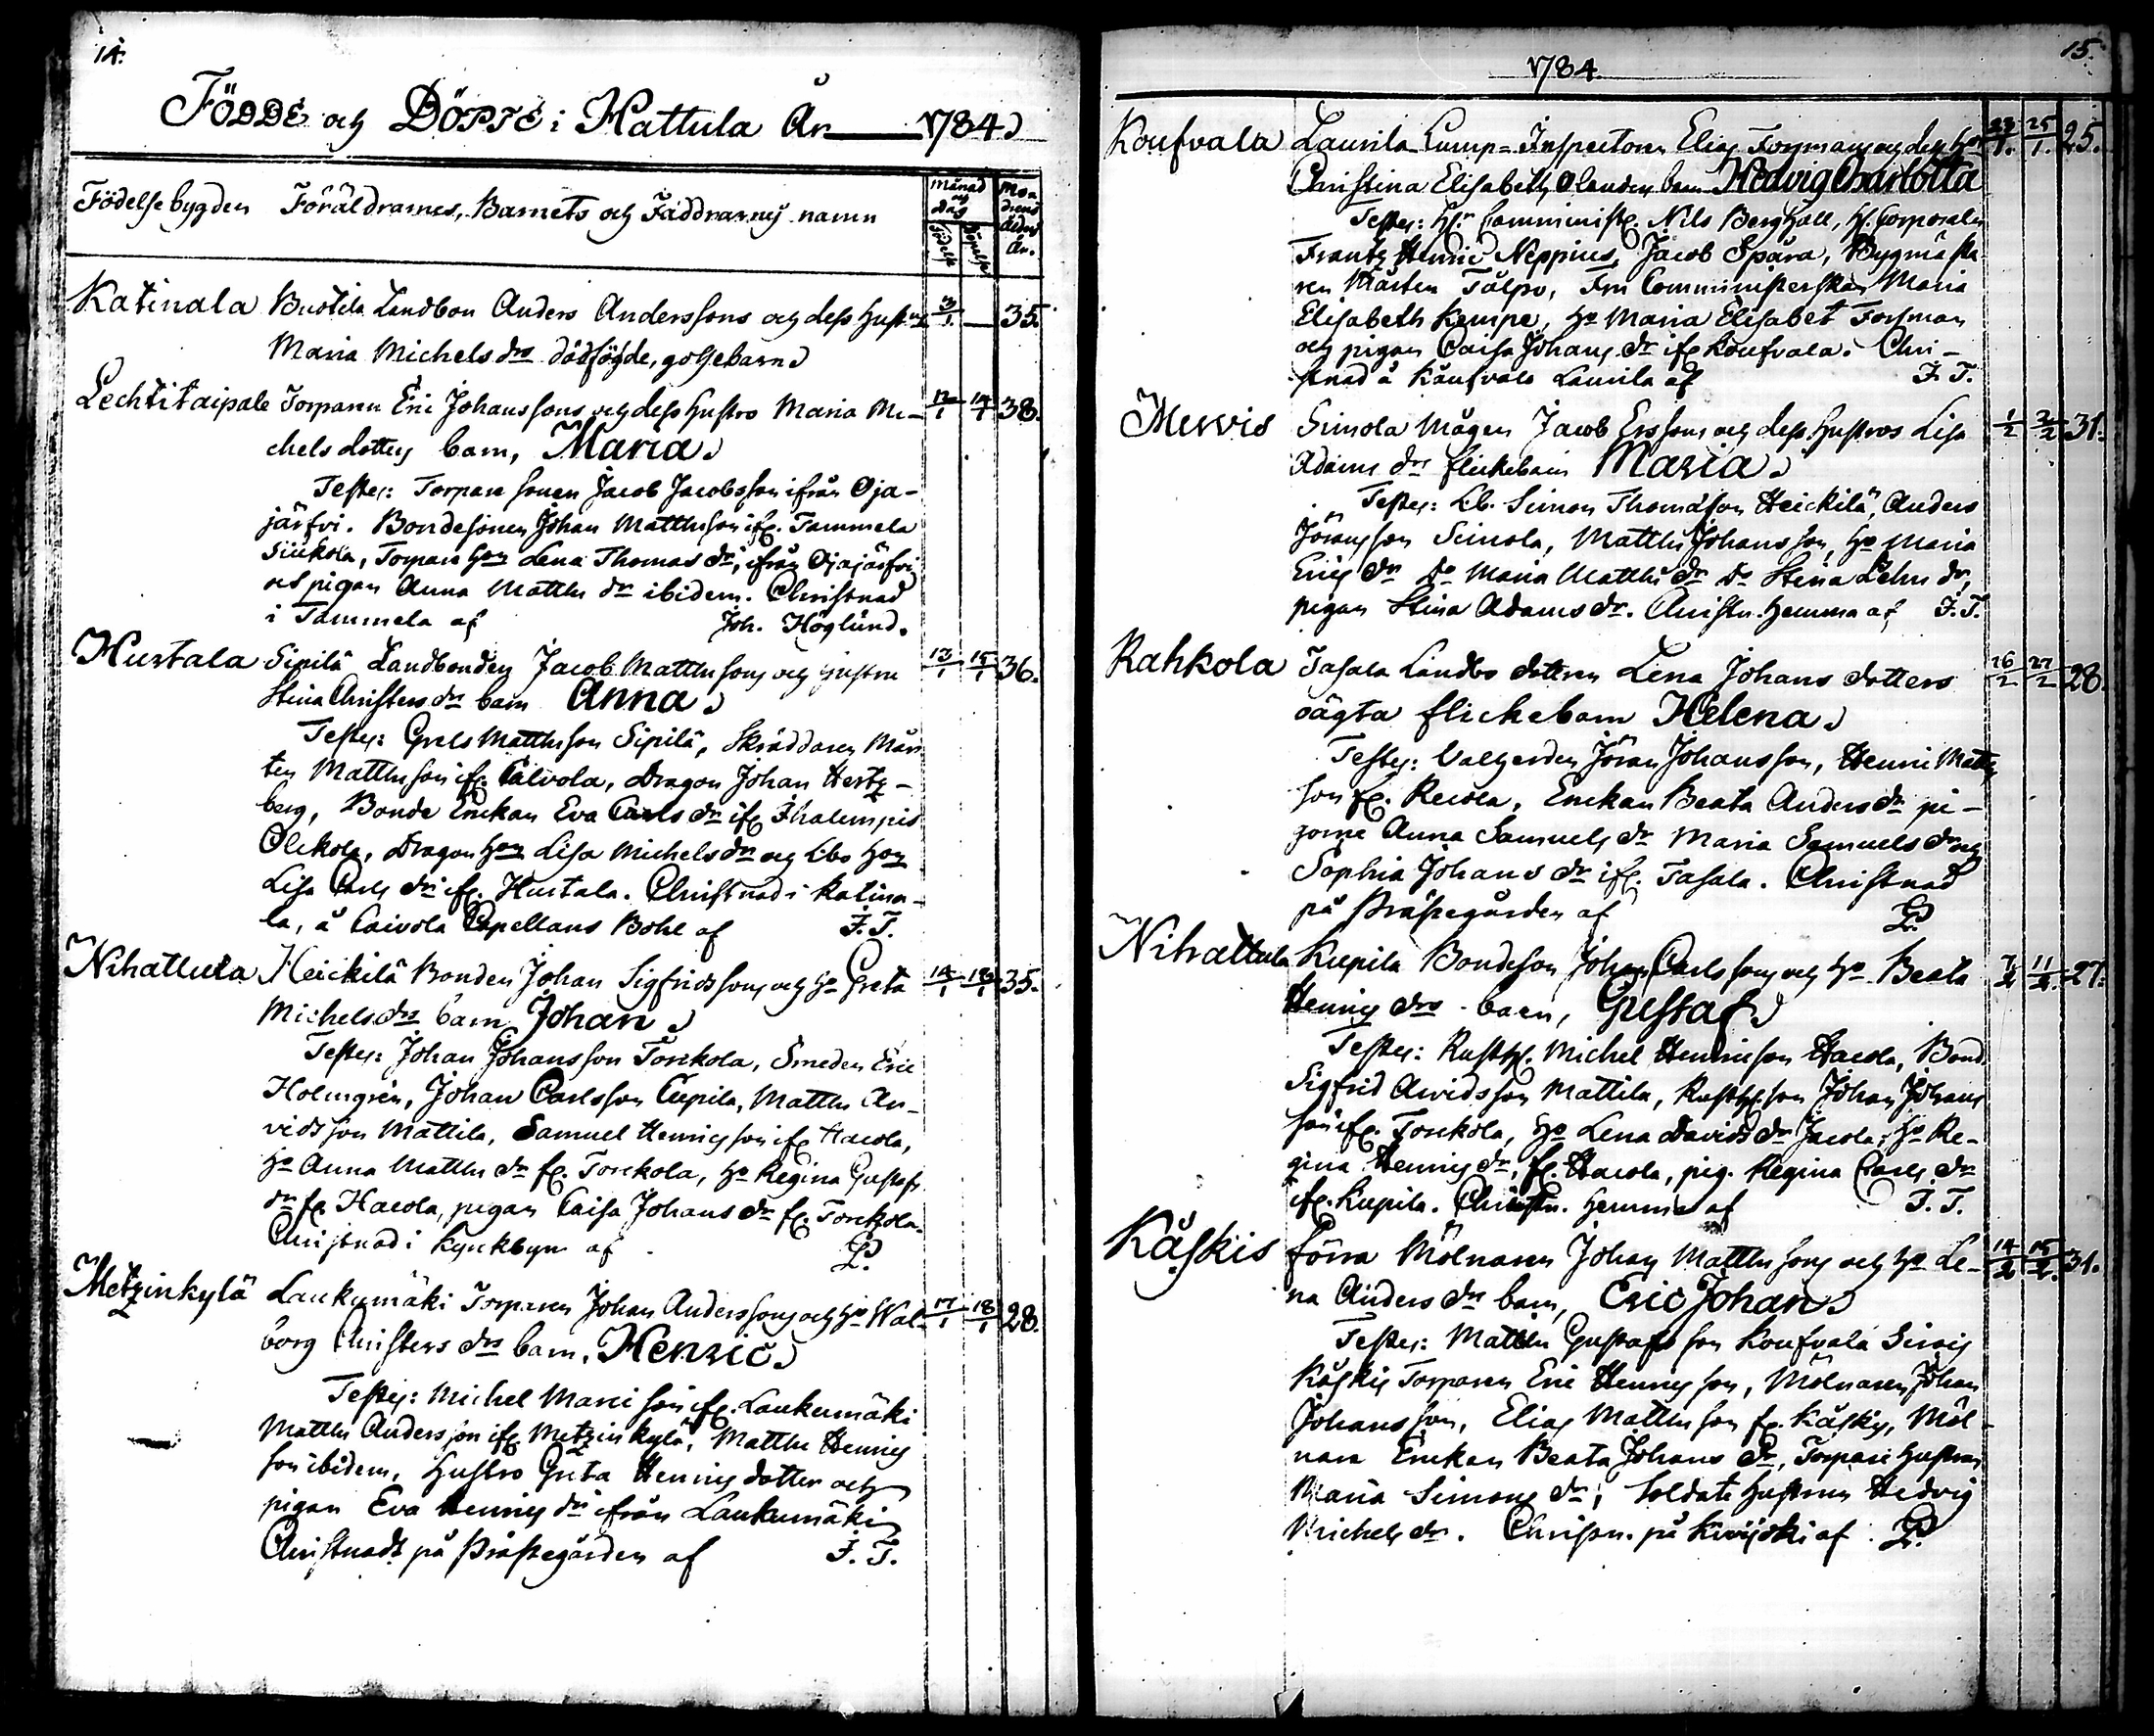 14.
FÖDDE och DÖPTE i Hattula År 1784
Födelse bygden Föräldrarnes, Barnets och Faddrarnes namn Månad och Dag Födelse Döpelse Modrens ålders år.
Katinala Bustila Landbon Anders Anderssons och dess hustrus 3/1 — 35.
Maria Michels drs dödfödde, gossebarn
Lechtitaipale Torparen Eric Johanssons och dess hustro Maria Mi- 12/1 14/1 38.
chels dotters barn, Maria
Testes: Torpare sonen Jacob Jacobsson ifrån Oja-
järfvi. Bondesonen Johan Matthsson ifr. Tammela
Siukola, Torpare hon Lena Thomas dr, ifrån Ojajärfvi
och pigan Anna Matths dr ibidem. Christnad
i Tammela af Joh. Höglund.
Hurtala Sipilä Landbonden Jacob Matthssons och hustru 13/1 15/1 36.
Stina Christers drs barn Anna
Testes: Grels Matthsson Sipilä, Skräddaren Mår-
ten Matthsson ifr. Calvola, Dragon Johan Hertz-
berg, Bonde Enckan Eva Carls dr ifr Ihalempis
Olckola, Dragon hon Lisa Michels dr och Lbo hon
Lisa Carls dr ifr. Hurtala. Christnad i Katina-
la, å Caivola Capellans Bohl af F. T.
Nihattula Heickilä Bonden Johan Sigfridssons och ho Greta 14/1 18/1 35.
Michels drs barn Johan
Testes: Johan Johansson Torckola, Smeden Eric
Holmgrén, Johan Carlsson Cupila, Matths Ar-
vidsson Mattila, Samuel Henricsson ifr Hacola,
Ho Anna Matths dr fr. Torckola, ho Regina Gustafs
dr fr Hacola, pigan Caisa Johans dr fr. Torckola.
Christnad i Kynckbyn af L.
Metzinkylä Laukumäki Torparen Johan Anderssons och ho Wal- 17/1 18/1 28.
borg Christers drs barn, Henric
Testes: Michel Marcisson ifr. Laukumäki
Matths Andersson ifr Metzinkylä, Matths Henrics
son ibidem, hustro Greta Henrics dotter och
pigan Eva Henrics dr ifrån Laukumäki
Christnadt på Prästegården af F. T.
1784. 15.
Koufvala Laurila Lump-Inspectoren Elias Forsmans och dess hon 23/1. 25/1. 25.
Christina Elisabeth Olanders barn Hedvig Charlotta
Testes: Hr. Comminist. Nils Berghäll, H. Corporalen
Frantz Henric Neppius, Jacob Spåra, Bygmästa
ren Mårten Tålpo, Fru Communisterskan Maria
Elisabeth Kempe, ho Maria Elisabet Forsman
och pigan Caisa Johans dr ifr Koufvala. Chri-
stnad å Koufvala Laurila af F. T.
Mervis Simola Mågen Jacob Erssons och dess hustros Lisa 1/2 2/2 31.
Adams drs flickebarn Maria
Testes: Lb. Simon Thomasson Heickilä, Anders
Jöransson Simola, Matths Johansson, ho Maria
Erics dr Do Maria Matths dr Do Stina Lehn dr,
pigan Stina Adams dr. Christn. hemma af F. T.
Rahkola Tasala Landbo dottren Lena Johans dotters 26/2 27/2 28.
oägta flickebarn Helena
Testes: Jöran Johansson, Henric Matts
son fr. Recola, Enckan Beata Anders dr pi-
gorne Anna Samuels dr Maria Samuels dr och
Sophia Johans dr ifr. Tasala. Christnad
på Prästegården af L.
Nihattula Kupila Bondeson Johan Carlssons och ho Beata 7/2 11/2. 27.
Henrics drs barn, Gustaf
Testes: Rusth. Michel Henricsson Hacola, Bond.
Sigfrid Arvidsson Mattila, Rusth. son Johan Johans
son ifr. Torckola, ho Lena Davids dr Jacola, ho Re-
gina Henrics dr, fr. Hacola, pig. Regina Carls dr
ifr. Kupila. Christn. hemma af F. T.
Kåskis förra Mölnaren Johan Matthssons och ho Le- 14/2 15/2. 31.
na Anders drs barn, Eric Johan
Testes: Matths Gustafsson Koufvala Sirois
Kåskis Torparen Eric Henricsson, Mölnaren Johan
Johansson, Elias Matthsson fr. Kåskis, Möl-
nare Enckan Beata Johans dr, Torpare hustrun
Maria Simons dr, Soldate hustrun Hedvig
Michels dr. Christn. på Kivijoki af L.